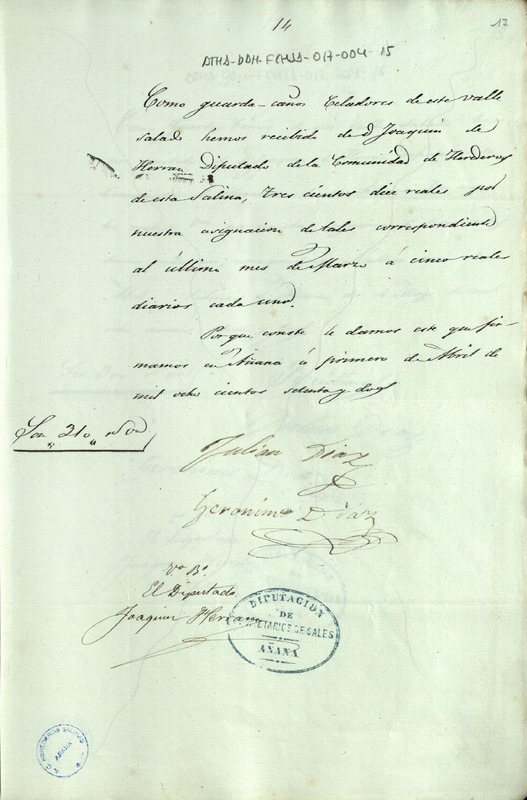 14
17
ATHA-DAH-FCHSA-017-004-15
Como guarda-caños Celadores de este valle
salado hemos recibido de D Joaquin de
Herran Diputado de la Comunidad de Herederos
de esta Salina, tres cientos diez reales por
nuestra asignacion de tales correspondiente
al último mes de Marzo á cinco reales
diarios cada uno.
Por que conste le damos este que fir-
mamos en Añana á primero de Abril de
mil ocho cientos setenta y dos
Son 310 rs
Julian Diaz
Geronimo Diaz
Vo. Bo.
El Diputado
Joaquin Herran
DIPUTACION
DE
PROPIETARIOS DE SALES
AÑANA
AÑANA